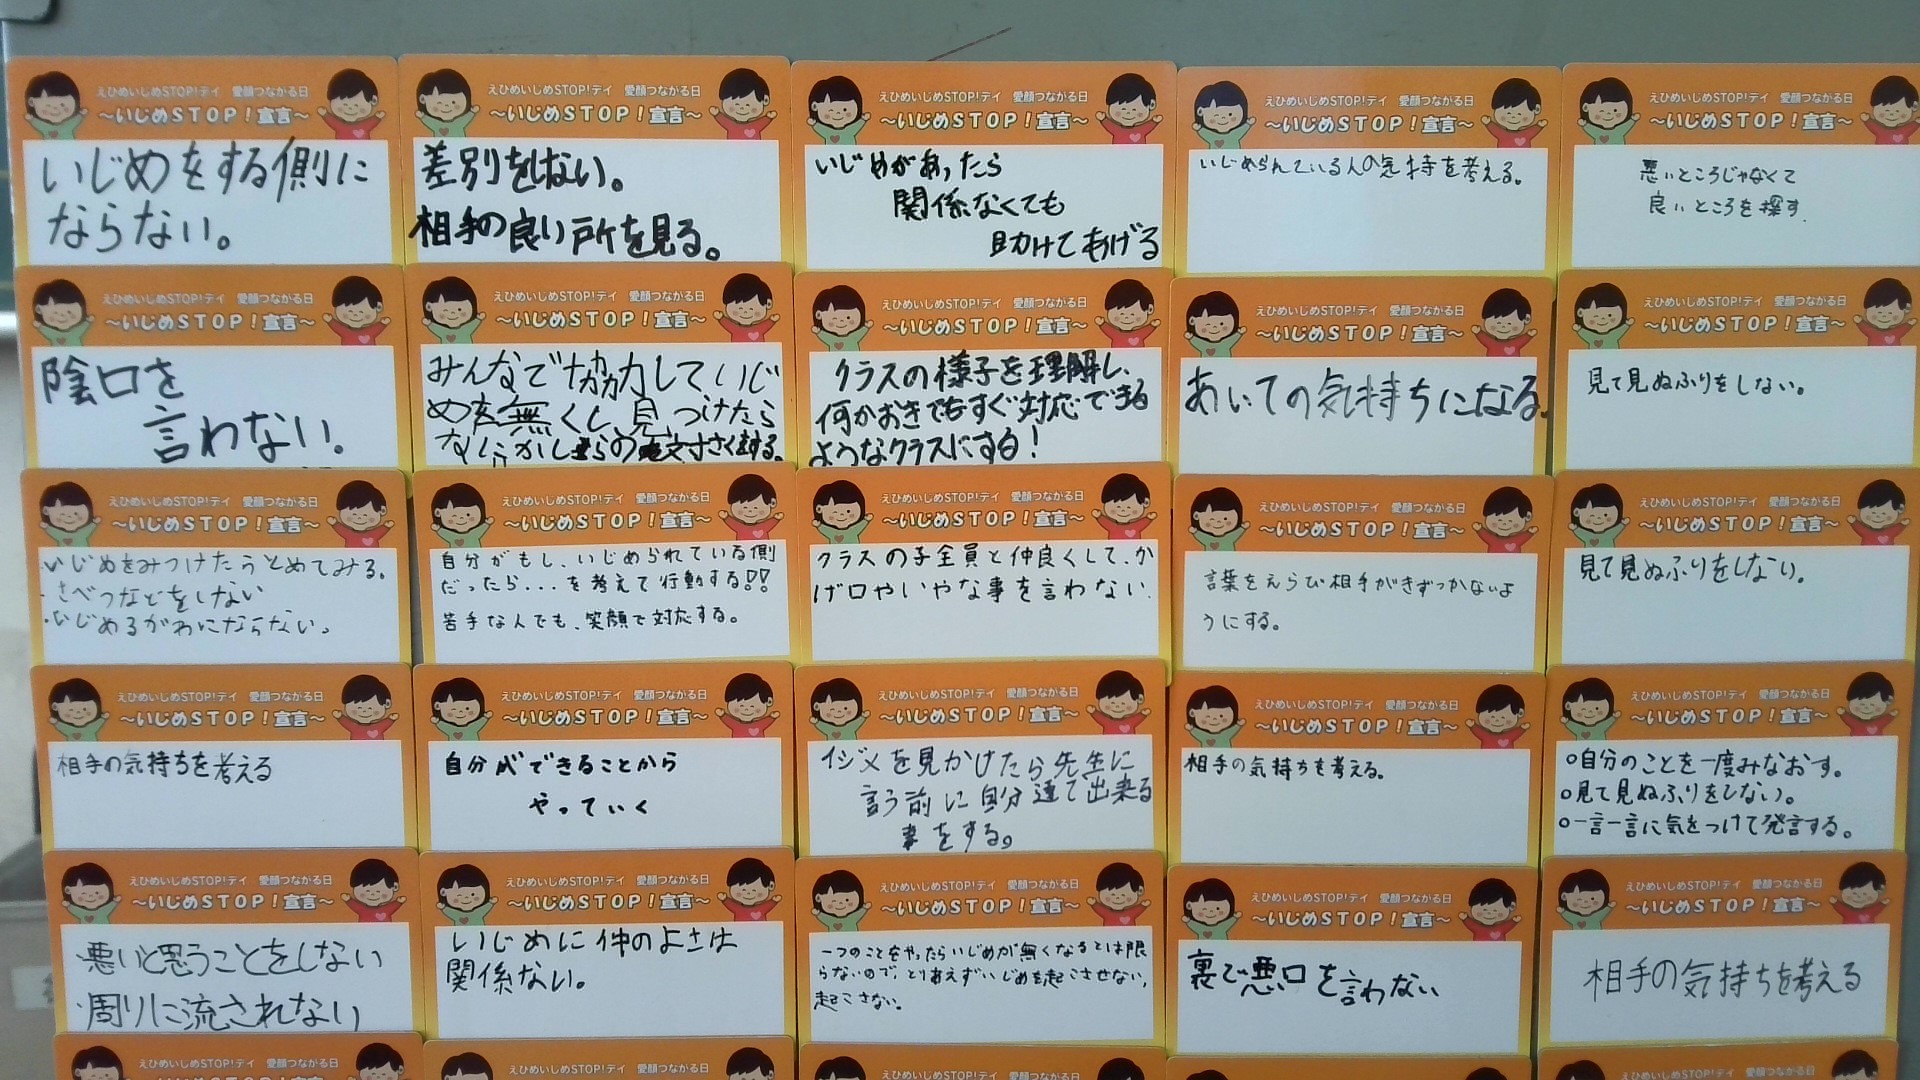 えひめいじめSTOP!デイ 愛顔つながる日
～いじめSTOP！宣言～
いじめをする側に
ならない。
えひめいじめSTOP!デイ 愛顔つながる日
～いじめSTOP！宣言～
差別をしない。
相手の良い所を見る。
えひめいじめSTOP!デイ 愛顔つながる日
～いじめSTOP！宣言～
いじめがあったら
関係なくても
助けてあげる
えひめいじめSTOP!デイ 愛顔つながる日
～いじめSTOP！宣言～
いじめられている人の気持を考える。
えひめいじめSTOP!デイ 愛顔つながる日
～いじめSTOP！宣言～
悪いところじゃなくて
良いところを探す.
えひめいじめSTOP!デイ 愛顔つながる日
～いじめSTOP！宣言～
陰口を
言わない.
えひめいじめSTOP!デイ 愛顔つながる日
～いじめSTOP！宣言～
みんなで協力していじ
めを無くし、見つけたら
なにかしらの対さくをする。
えひめいじめSTOP!デイ 愛顔つながる日
～いじめSTOP！宣言～
クラスの様子を理解し、
何かおきてもすぐ対応できる
ようなクラスにする！
えひめいじめSTOP!デイ 愛顔つながる日
～いじめSTOP！宣言～
あいての気持ちになる.
えひめいじめSTOP!デイ 愛顔つながる日
～いじめSTOP！宣言～
見て見ぬふりをしない。
えひめいじめSTOP!デイ 愛顔つながる日
～いじめSTOP！宣言～
・いじめをみつけたらとめてみる.
・さべつなどをしない
・いじめるがわにならない。
えひめいじめSTOP!デイ 愛顔つながる日
～いじめSTOP！宣言～
自分がもし、いじめられている側
だったら...を考えて行動する!!
苦手な人でも、笑顔で対応する。
えひめいじめSTOP!デイ 愛顔つながる日
～いじめSTOP！宣言～
クラスの子全員と仲良くして、か
げ口やいやな事を言わない.
えひめいじめSTOP!デイ 愛顔つながる日
～いじめSTOP！宣言～
言葉をえらび相手がきずつかないよ
うにする。
えひめいじめSTOP!デイ 愛顔つながる日
～いじめSTOP！宣言～
見て見ぬふりをしない。
えひめいじめSTOP!デイ 愛顔つながる日
～いじめSTOP！宣言～
相手の気持ちを考える
えひめいじめSTOP!デイ 愛顔つながる日
～いじめSTOP！宣言～
自分ができることから
やっていく
えひめいじめSTOP!デイ 愛顔つながる日
～いじめSTOP！宣言～
イジメを見かけたら先生に
言う前に自分達で出来る
事をする。
えひめいじめSTOP!デイ 愛顔つながる日
～いじめSTOP！宣言～
相手の気持ちを考える。
えひめいじめSTOP!デイ 愛顔つながる日
～いじめSTOP！宣言～
○自分のことを一度みなおす。
○見て見ぬふりをしない。
○一言一言に気をつけて発言する。
えひめいじめSTOP!デイ 愛顔つながる日
～いじめSTOP！宣言～
・悪いと思うことをしない
・周りに流されない
えひめいじめSTOP!デイ 愛顔つながる日
～いじめSTOP！宣言～
いじめに仲のよさは
関係ない。
えひめいじめSTOP!デイ 愛顔つながる日
～いじめSTOP！宣言～
一つのことをやったらいじめが無くなるとは限
らないので、とりあえずいじめを起こさせない,
起こさない。
えひめいじめSTOP!デイ 愛顔つながる日
～いじめSTOP！宣言～
裏で悪口を言わない
えひめいじめSTOP!デイ 愛顔つながる日
～いじめSTOP！宣言～
相手の気持ちを考える
えひめいじめSTOP!デイ 愛顔つながる日
えひめいじめSTOP!デイ 愛顔つながる日
えひめいじめSTOP!デイ 愛顔つながる日
えひめいじめSTOP!デイ 愛顔つながる日